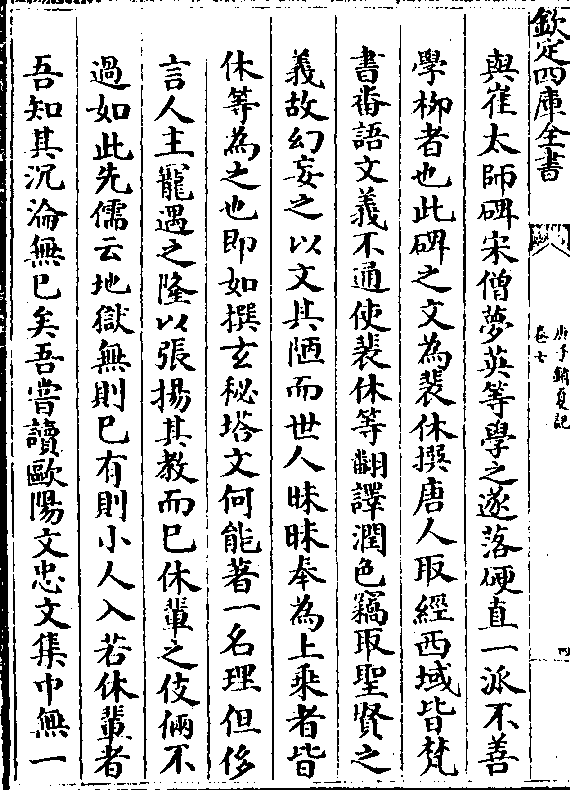 欽定四庫全書
庚子銷夏記
卷七
與崔太師碑宋僧夢英等學之遂落硬直一派不善
學柳者也此碑之文為裴休撰唐人取經西域皆梵
書番語文義不通使裴休等翻譯潤色竊取聖賢之
義故幻妄之以文其陋而世人昧昧奉為上乘者皆
休等為之也即如撰玄秘塔文何能著一名理但侈
言人主寵遇之隆以張揚其教而已休輩之伎倆不
過如此先儒云地獄無則已有則小人入若休輩者
吾知其沉淪無已矣吾嘗讀歐陽文忠文集中無一